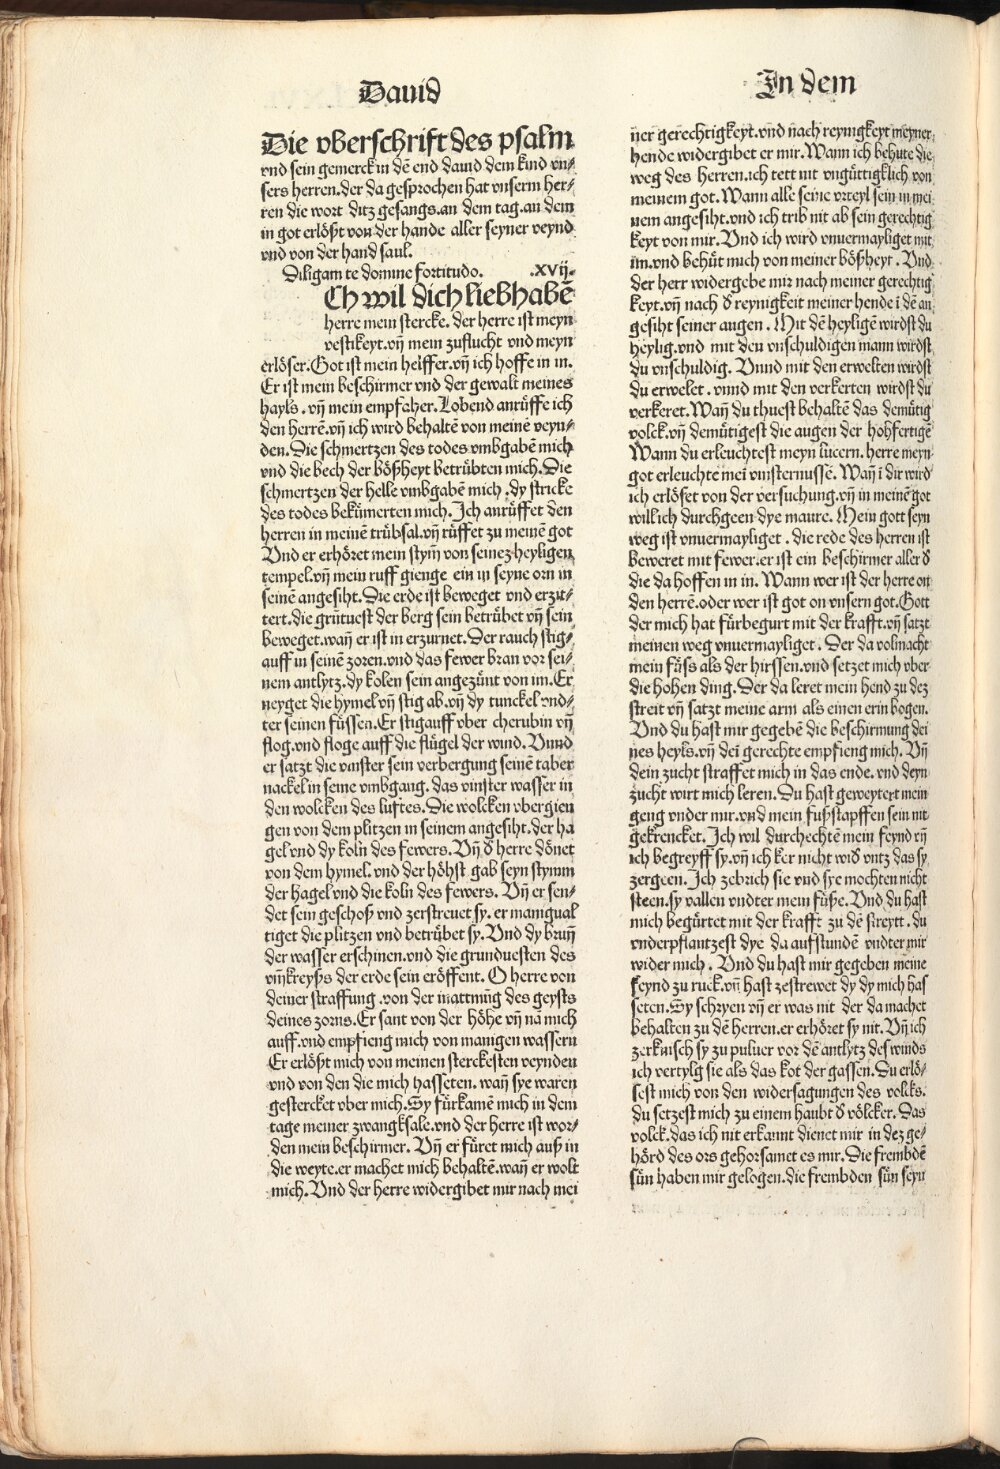 Dauid
In dem
Die vberschrift des psalm
vnd sein gemerck in dē end dauid dem kind vn⸗
sers herren.der da gesprochen hat vnserm her⸗
ren die wort ditz gesangs.an dem tag.an dem
in got erlößt von der hande aller seyner veynd
vnd von der hand saul.
Diligam te domine fortitudo. .xvij.
Ch wil dich liebhabē
herre mein stercke. der herre ist meyn
vestikeyt.vñ mein zuflucht vnd meyn
erlöser.Got ist mein helffer.vñ ich hoffe in in.
Er ist mein beschirmer vnd der gewalt meines
hayls. vñ mein empfaher.Lobend anrůffe ich
den herrē.vñ ich wird behaltē von meinē veyn⸗
den.Die schmertzen des todes vmbgabē mich
vnd die bech der bößheyt betrůbten mich.Die
schmertzen der helle vmbgabē mich.dy stricke
des todes bekůmerten mich.Ich anrůffet den
herren in meinē trůbsal.vñ růffet zu meinē got
Vnd er erhöret mein stym̄ von seinez heyligen
tempel.vñ mein ruff gienge ein in seyne orn in
seinē angesiht.Die erde ist beweget vnd erzit⸗
tert.die grůntuest der berg sein betrůbet vñ sein
beweget.wañ er ist in erzurnet.Der rauch stig⸗
auff in seinē zoren.vnd das fewer bran vor sei⸗
nem antlytz.dy kolen sein angezůnt von im.Er
neyget die hymel vñ stig ab.vñ dy tunckel vnd⸗
ter seinen fůssen.Er stig auff vber cherubin vñ
flog.vnd floge auff die flůgel der wind.Vnnd
er satzt die vinster sein verbergung seinē taber
nackel in seine vmbgang.das vinster wasser in
den wolcken des luftes.Die wolcken vbergien
gen von dem plitzen in seinem angesiht.der ha
gel vnd dy koln des fewers. Vñ đ herre dönet
von dem hymel.vnd der höhst gab seyn stymm
der hagel vnd die koln des fewers. Vñ er sen⸗
det sein geschoß vnd zerstreuet sy.er manigual
tiget die plitzen vnd betrůbet sy.Vnd dy brun̄
der wasser erschinen.vnd die grunduesten des
vm̄kreyßs der erde sein eröffent. O herre von
deiner straffung.von der inattmūg des geysts
deines zorns.Er sant von der höhe vñ nā mich
auff.vnd empfieng mich von manigen wassern
Er erlößt mich von meinen sterckesten veynden
vnd von den die mich hasseten.wañ sye waren
gestercket vber mich.Sy fůrkamē mich in dem
tage meiner zwangksale.vnd der herre ist wor⸗
den mein beschirmer. Vñ er fůret mich auß in
die weyte.er machet mich behaltē.wañ er wolt
mich.Vnd der herre widergibet mir nach mei
ner gerechtigkeyt.vnd nach reynigkeyt meyner
hende widergibet er mir.Wann ich behute die
weg des herren.ich tett nit vngůttigklich von
meinem got.Wann alle seine vrteyl sein in mei
nem angesiht.vnd ich trib nit ab sein gerechtig
keyt von mir.Vnd ich wird vnuermayliget mit
im.vnd behůt mich von meiner bößheyt. Vnd
der herr widergebe mir nach meiner gerechtig
keyt.vñ nach đ reynigkeit meiner hende ī dē an
gesiht seiner augen. Mit dē heyligē wirdst du
heylig.vnd mit den vnschuldigen mann wirdst
du vnschuldig. Vnnd mit den erwelten wirdst
du erwelet. vnnd mit den verkerten wirdst du
verkeret.Wañ du thuest behaltē das demůtig
volck.vñ demůtigest die augen der hohfertigē
Wann du erleuchtest meyn lucern. herre meyn
got erleuchte mei vinsternusse. Wañ ī dir wird
ich erlöset von der versuchung.vñ in meinē got
will ich durchgeen dye maure. Mein gott seyn
weg ist vnuermayliget. die rede des herren ist
beweret mit fewer.er ist ein beschirmer aller đ
die da hoffen in in. Wann wer ist der herre on
den herrē.oder wer ist got on vnsern got.Gott
der mich hat fůrbegurt mit der krafft.vñ satzt
meinen weg vnuermayliget. Der da volmacht
mein fůss als der hirssen.vnd setzet mich vber
die hohen ding.Der da leret mein hend zu dez
streit vñ satzt meine arm als einen erin bogen.
Vnd du hast mir gegebē die beschirmung dei
nes heyls.vñ dei gerechte empfieng mich. Vñ
dein zucht straffet mich in das ende.vnd deyn
zucht wirt mich leren.Du hast geweytert mein
geng vnder mir.vnd mein fußstapffen sein nit
gekrencket.Ich wil durchechtē mein feynd vñ
ich begreyff sy.vñ ich ker nicht wiđ vntz das sy
zergeen.Ich zebrich sie vnd sye mochten nicht
steen.sy vallen vndter mein fůße.Vnd du hast
mich begůrtet mit der krafft zu dē streytt.du
vnderpflantzest dye da aufstundē vndter mir
wider mich. Vnd du hast mir gegeben meine
feynd zu ruck.vñ hast zestrewet dy dy mich has
seten.Sy schryen vñ er was nit der da machet
behalten zu dē herren.er erhöret sy nit.Vñ ich
zerknisch sy zu puluer vor dē antlytz des winds
ich vertylg sie als das kot der gassen.Du erlö⸗
sest mich von den widersagungen des volcks.
du setzest mich zu einem haubt đ völcker.Das
volck.das ich nit erkannt dienet mir in dez ge⸗
hörd des ors gehorsamet es mir.Die frembdē
sůn haben mir gelogen.die frembden sůn seyn